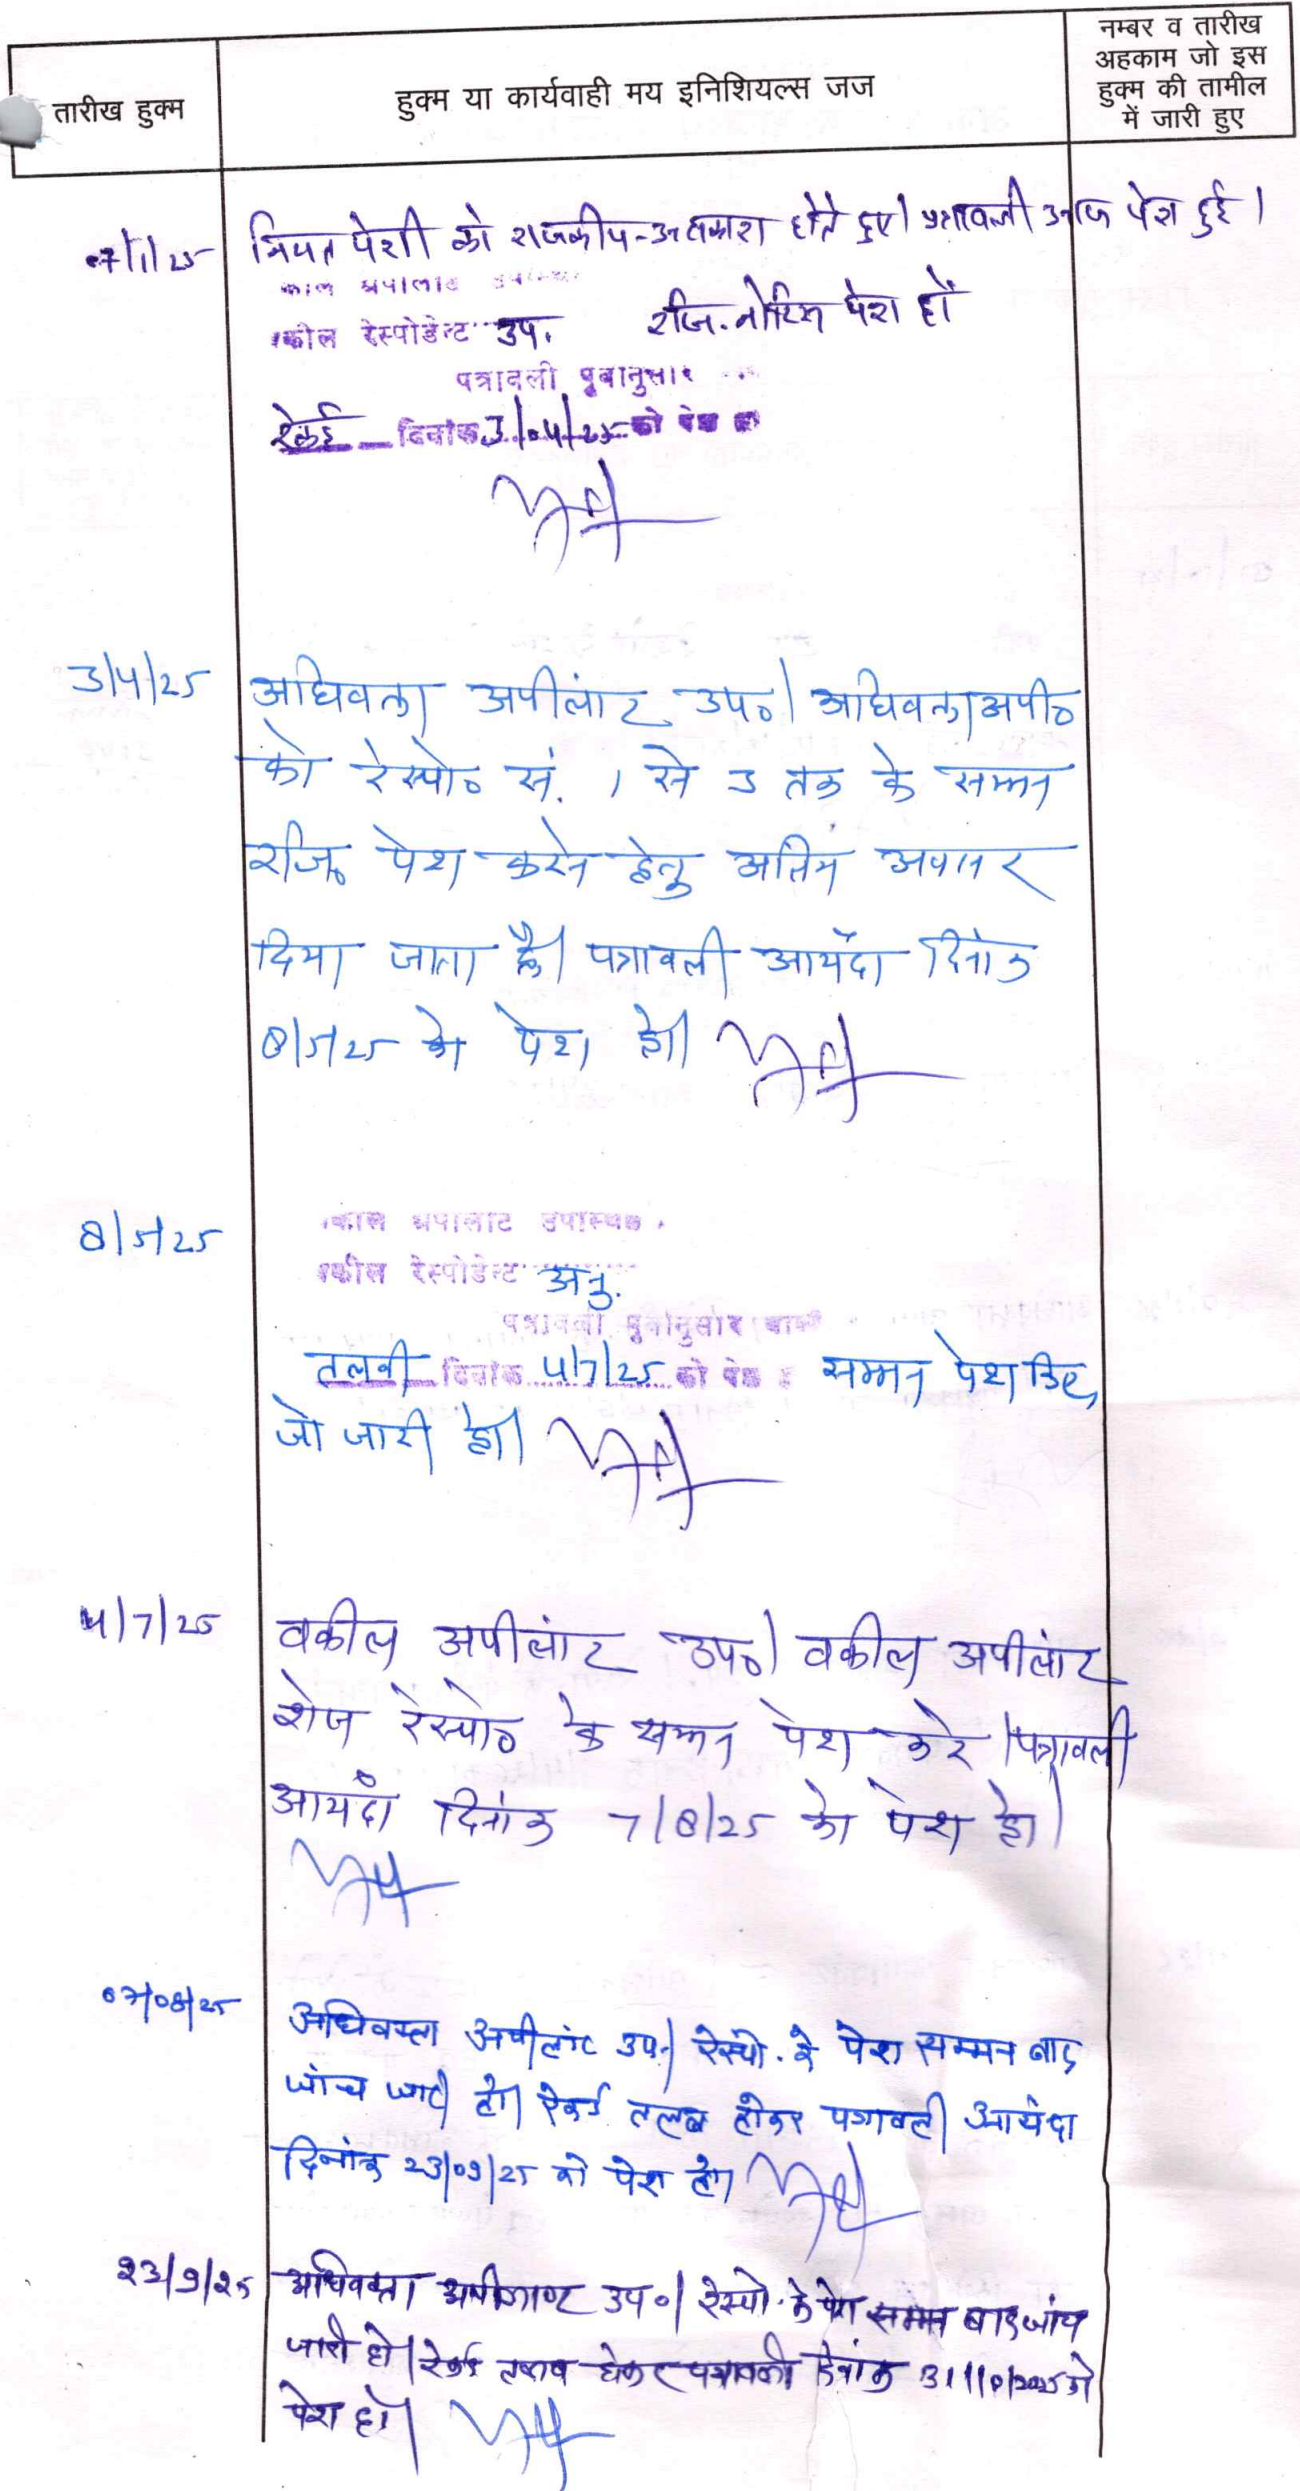 तारीख हुक्म
हुक्म या कार्यवाही मय इनिशियल्स जज
नम्बर व तारीख
अहकाम जो इस
हुक्म की तामील
में जारी हुए
07/1/25
नियत पेशी को राजकीय-अवकाश होते हुए। पत्रावली आज पेश हुई।
रेस्पोडेन्ट उप. रजि. नोटिस पेश हों
पत्रावली पूवानुसार
रेकर्ड दिनांक 3/04/25 को पेश हो
3/4/25
अधिवक्ता अपीलांट उप०। अधिवक्ता अपी०
को रेस्पो० सं. 1 से 3 तक के सम्मन
रजि० पेश करने हेतु अंतिम अवसर
दिया जाता है। पत्रावली आयंदा दिनांक
8/5/25 को पेश हो।
8/5/25
रेस्पोडेन्ट अनु.
पत्रावली पूवानुसार
तलबी दिनांक 4/7/25 को पेश सम्मन पेश किए
जो जारी हो।
4/7/25
वकील अपीलांट उप०। वकील अपीलांट
शेष रेस्पो० के सम्मन पेश करे। पत्रावली
आयंदा दिनांक 7/8/25 को पेश हो।
07/08/25
अधिवक्ता अपीलांट उप.। रेस्पो. के पेश सम्मन बाद
जांच जारी हो। रेकर्ड तलब होकर पत्रावली आयंदा
दिनांक 23/09/25 को पेश हो।
23/9/25
अधिवक्ता अपीलाण्ट उप०। रेस्पो. के पेश सम्मन बाद जांच
जारी हो। रेकर्ड तलब होकर पत्रावली दिनांक 31/10/2025 को
पेश हो।